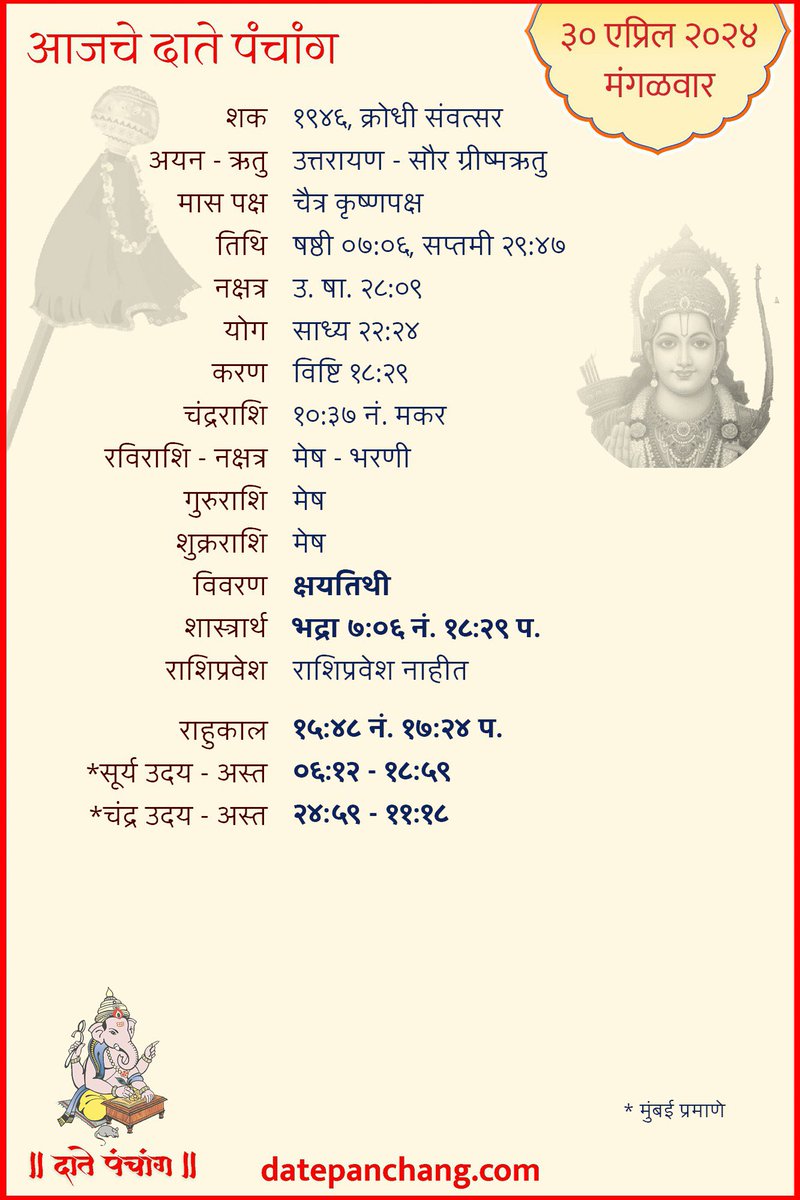 आजचे दाते पंचांग
३० एप्रिल २०२४
मंगळवार
शक १९४६, क्रोधी संवत्सर
अयन - ऋतु उत्तरायण - सौर ग्रीष्मऋतु
मास पक्ष चैत्र कृष्णपक्ष
तिथि षष्ठी ०७:०६, सप्तमी २९:४७
नक्षत्र उ. षा. २८:०९
योग साध्य २२:२४
करण विष्टि १८:२९
चंद्रराशि १०:३७ नं. मकर
रविराशि - नक्षत्र मेष - भरणी
गुरुराशि मेष
शुक्रराशि मेष
विवरण क्षयतिथी
शास्त्रार्थ भद्रा ७:०६ नं. १८:२९ प.
राशिप्रवेश राशिप्रवेश नाहीत
राहुकाल १५:४८ नं. १७:२४ प.
*सूर्य उदय - अस्त ०६:१२ - १८:५९
*चंद्र उदय - अस्त २४:५९ - ११:१८
* मुंबई प्रमाणे
|| दाते पंचांग ||
datepanchang.com